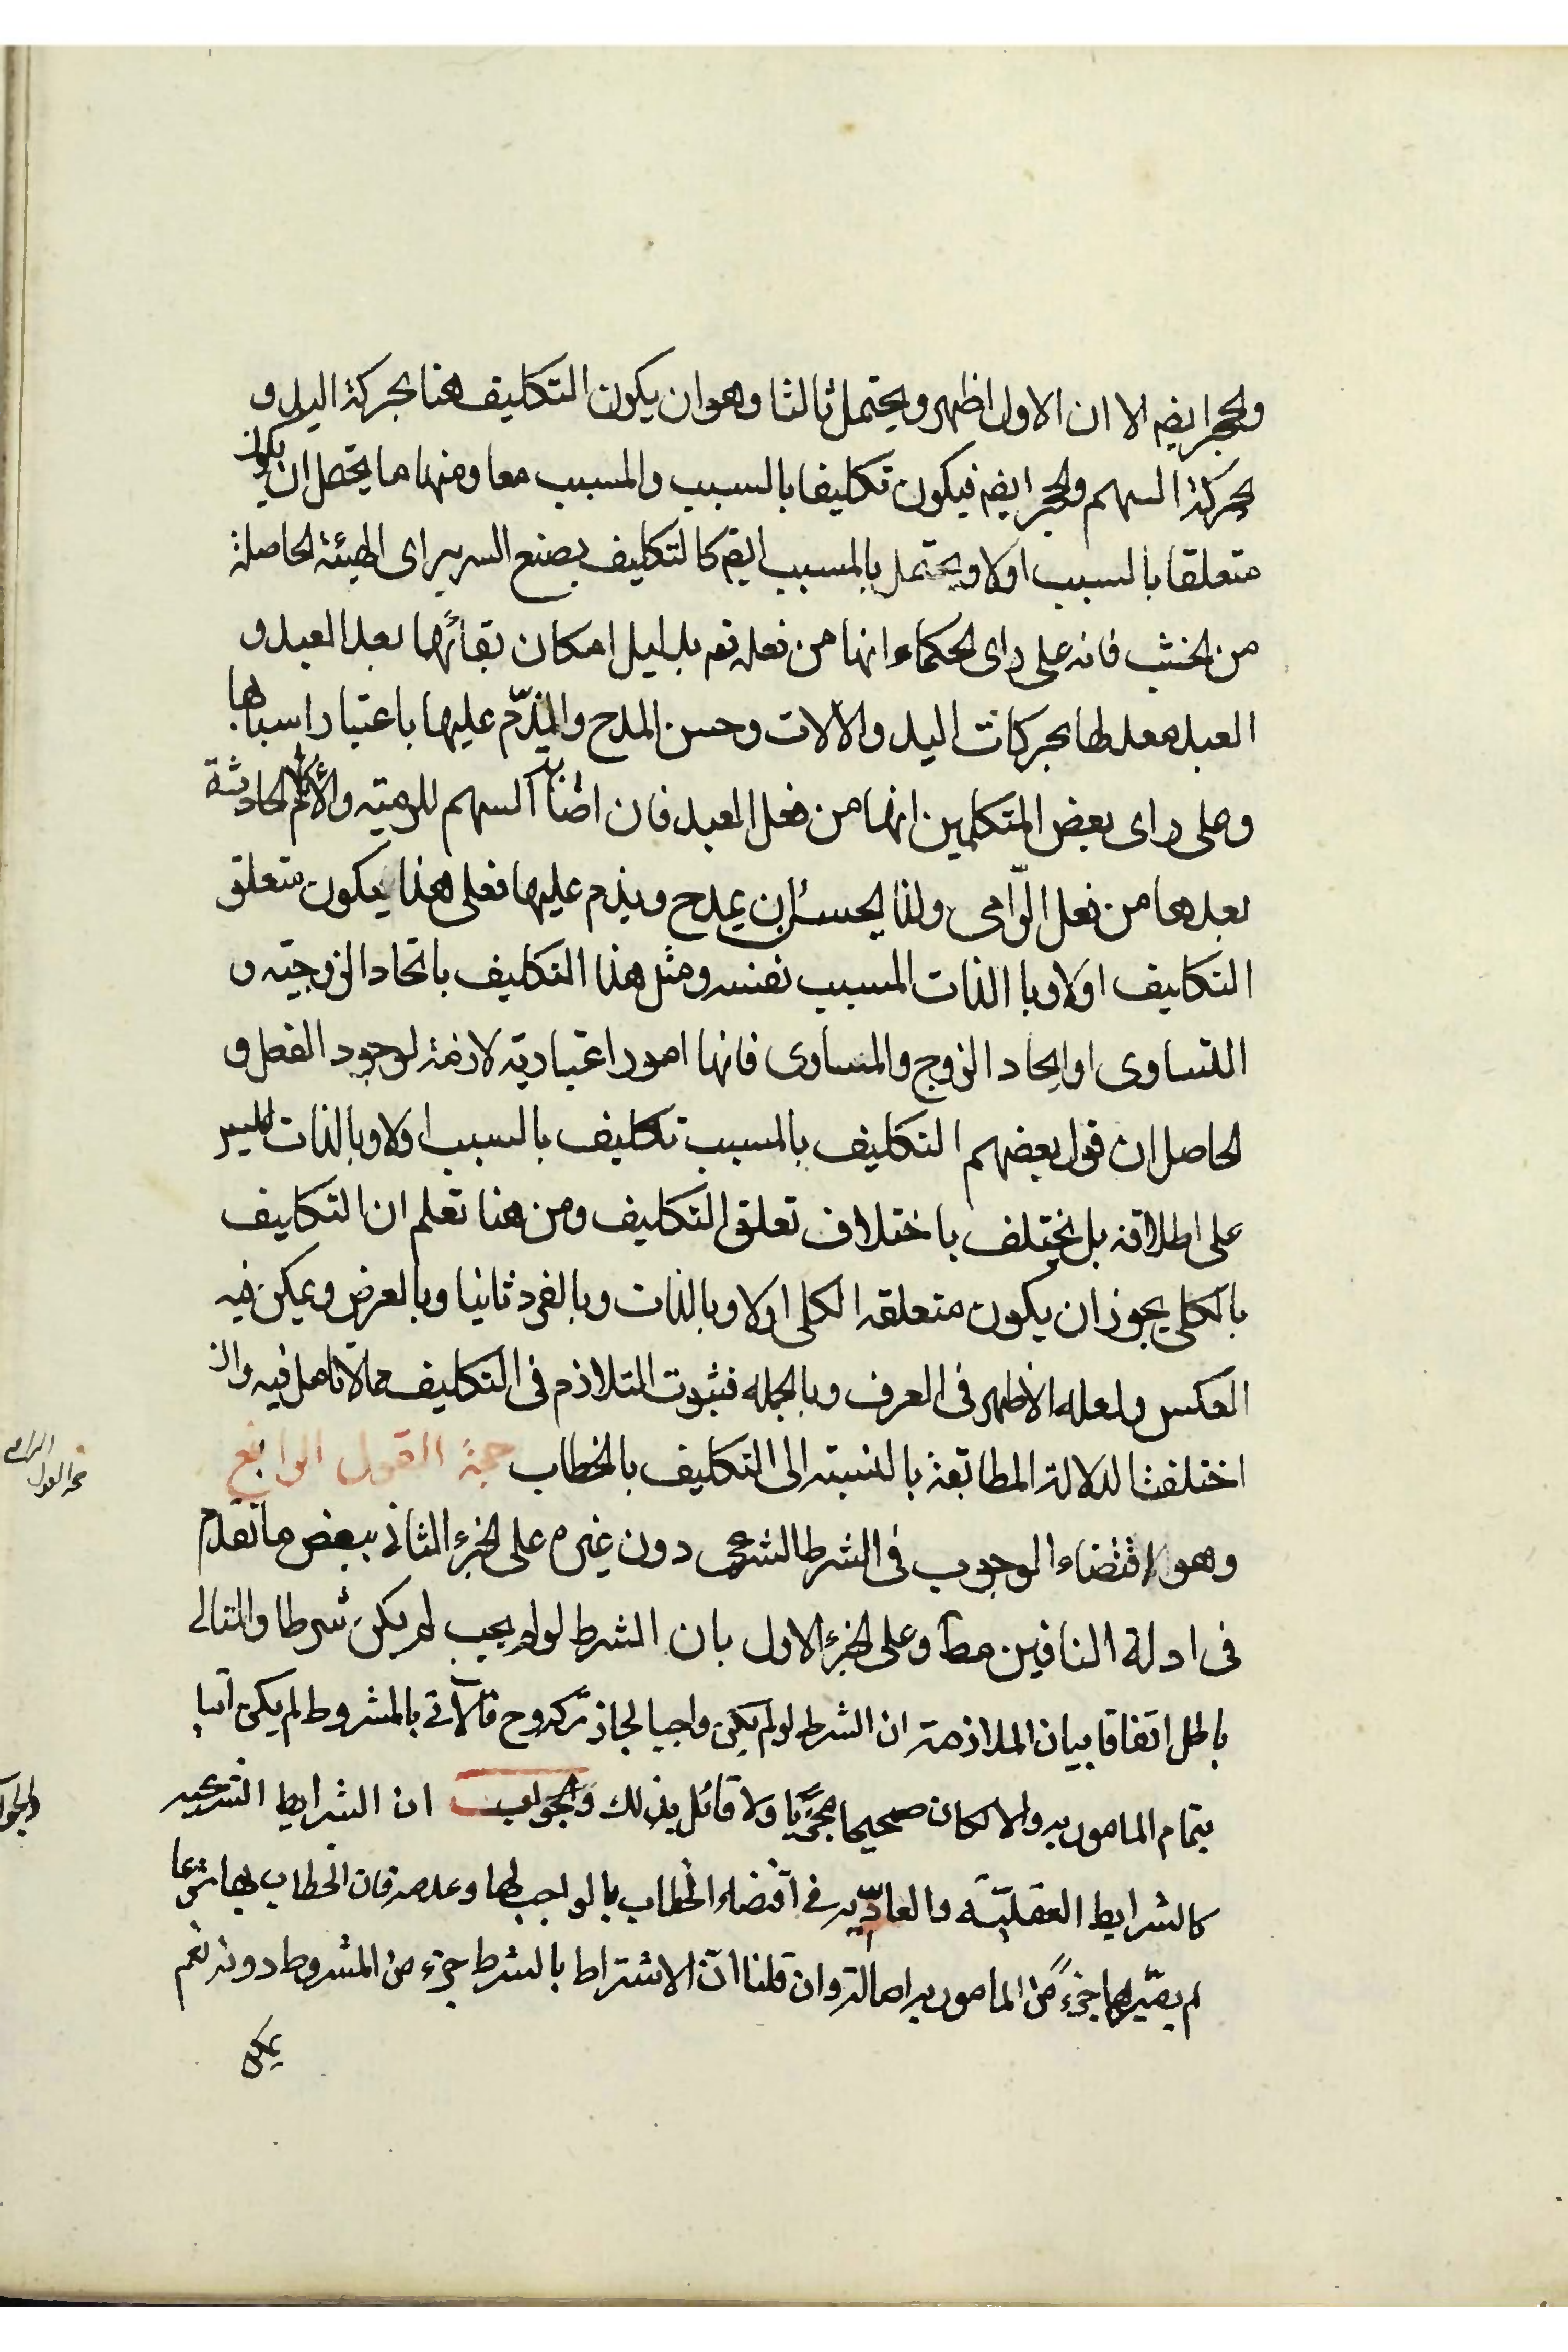 والحجر ايضا الا ان الاول اظهر ويحتمل ثالثا وهو ان يكون التكليف هنا بحركة اليد و
بحركة السهم والحجر ايضا فيكون تكليفا بالسبب والمسبب معا ومنها ما يحتمل ان يكون
متعلقا بالسبب اولا ويحتمل بالمسبب ايضا كالتكليف بصنع السرير اى الهيئة الحاصلة
من الخشب فانه على راى الحكماء انها من فعله تع بدليل امكان بقائها بعد العبد و
العبد معد لها بحركات اليد والالات وحسن المدح والذم عليها باعتبار اسبابها
وعلى راى بعض المتكلمين انها من فعل العبد فان اصابة السهم للرمية والآلام الحادثة
بعدها من فعل الرّامى ولذا يحسن ان يمدح ويذم عليها فعلى هذا يكون متعلق
التكليف اولا وبا الذات المسبب نفسه ومثل هذا التكليف باتحاد الزوجية و
التساوى او ايجاد الزوج والمساوى فانها امور اعتبارية لازمة لوجود الفعل و
الحاصل ان قول بعضهم التكليف بالمسبب تكليف بالسبب اولا وبالذات ليس
على اطلاقه بل يختلف باختلاف تعلق التكليف ومن هنا تعلم ان التكليف
بالكلى يجوز ان يكون متعلقه الكلى اولا وبالذات وبالفرد ثانيا وبالعرض ويمكن فيه
العكس ولعله الأظهر فى العرف وبالجمله فثبوت التلازم فى التكليف مما لا تامل فيه وان
اختلفت الدلالة المطابقة بالنسبته الى التكليف بالخطاب حجة القول الرابع
وهو لاقتضاء الوجوب فى الشرط الشرعى دون غيره على الجزء الثانى ببعض ما تقدم
فى ادلة النافين مطا وعلى الجزء الاول بان الشرط لو لم يجب لم يكن شرطا والتالى
باطل اتفاقا بيان الملازمة ان الشرط لو لم يكن واجبا لجاز تركه وح فالآتى بالمشروط لم يكن آتيا
بتمام المامور به والا لكان صحيحا مجزيا ولا قائل بذلك والجواب ان الشرايط الشرعيه
كالشرايط العقليّة والعاديّه فى اقتضاء الخطاب بالواجب لها وعدمه فان الخطاب بها شرعا
لم يصيّرها جزءً من المامور به اصالة وان قلنا انّ الاشتراط بالشرط جزء من المشروط دونه نعم
يمكن